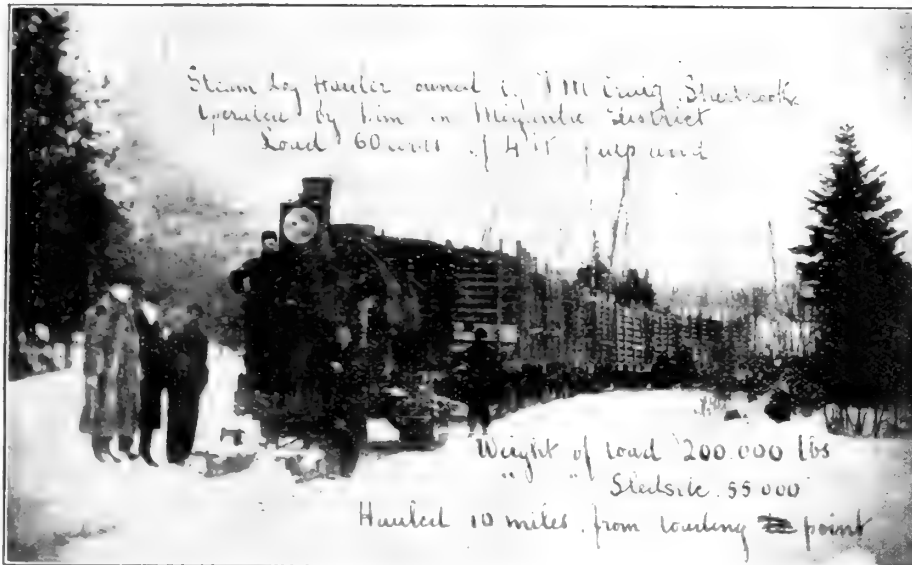 Steam Log Hauler owned by T M Craig Sherbrooke
Operated by him in Megantic District
Load 60 cords of 4 ft pulp wood
Weight of Load 200.000 lbs
" " 55 000
Hauled 10 miles. from loading point